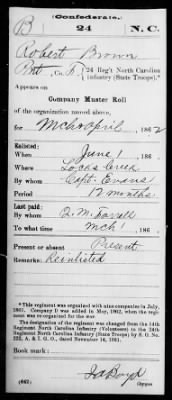 (Confederate.)
B 24 N. C.
Robert Brown
Pvt , Co. F, 24 Reg't North Carolina
Infantry (State Troops).*
Appears on
Company Muster Roll
of the organization named above,
for Mch & April, 186 2
Enlisted:
When June 1 , 186 .
Where Locks Creek
By whom Capt. Evans
Period 12 months
Last paid:
By whom Q. M.
To what time Mch 1 , 186 .
Present or absent Present
Remarks: Reinlisted
*This regiment was organized with nine companies in July,
1861. Company D was added in May, 1862, when the regi-
ment was re-organized for the war.
The designation of the regiment was changed from the 14th
Regiment North Carolina Infantry (Volunteers) to the 24th
Regiment North Carolina Infantry (State Troops) by S. O. No.
222, A. & I. G. O., dated November 14, 1861.
Book mark:
(642) Boyd
Copyist.